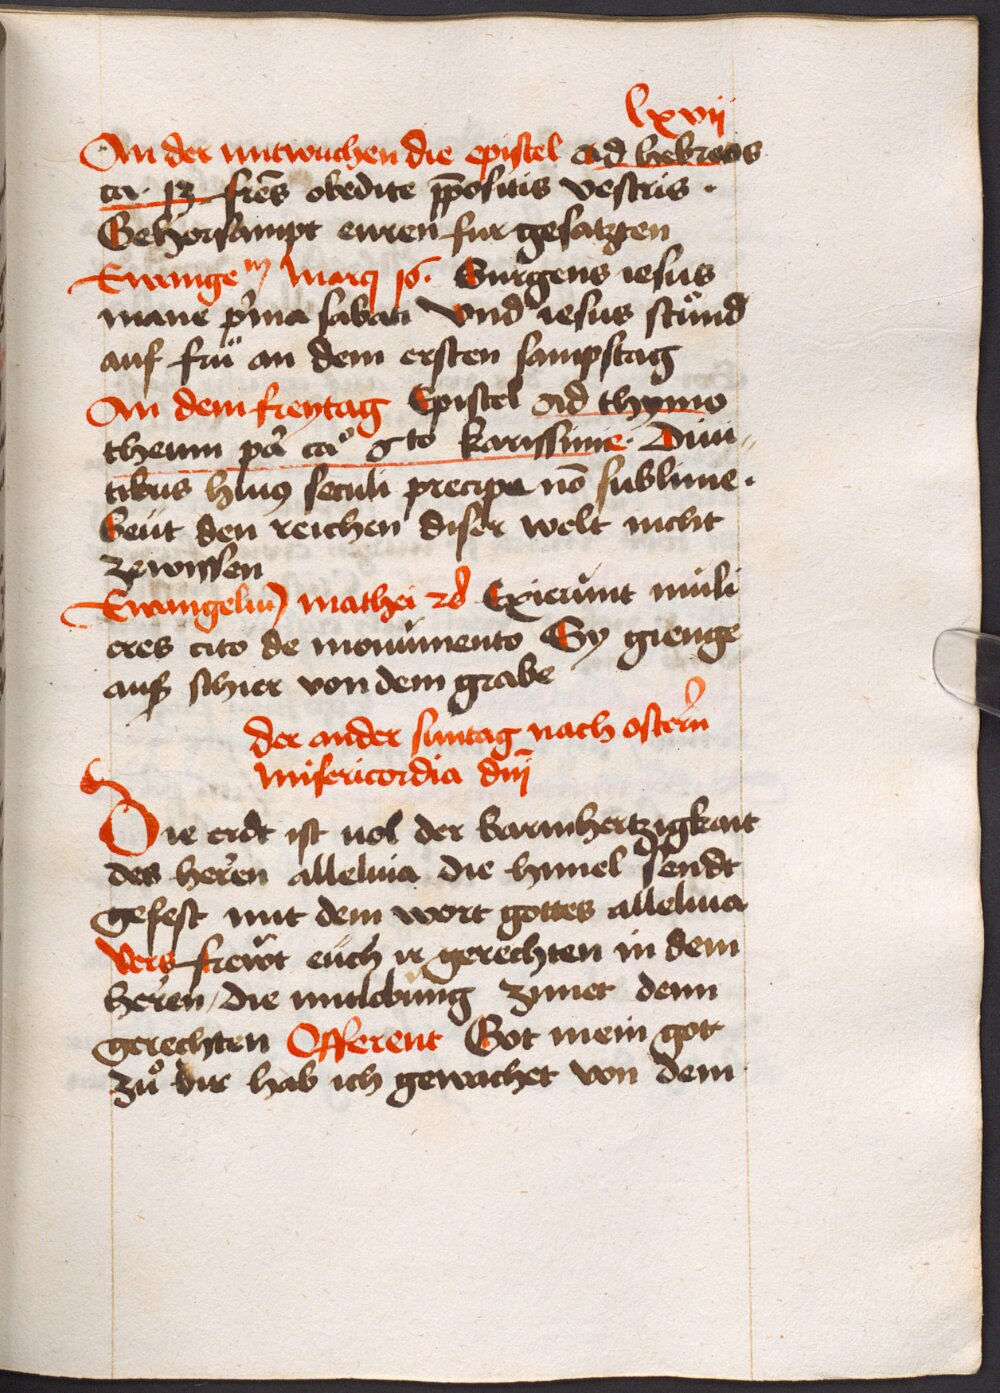 lxvij
An der mitwuchen die epistel ad hebreos
ca. 13 fres obedite ppositis vestris .
Gehorsampt euren fur gesatzten
Ewange m Marcj 16. Surgens iesus
mane prima sabati Vnd iesus stůnd
auf frü an dem ersten sampstag
An dem freytag Epistel ad thymo
theum pa cao 6to karissime. Diui„
tibus huius seculi precipe no sublime .
Beüt den reichen diser welt nicht
ze wissen
Ewangeliu mathei 28 Exierunt muli
eres cito de monumento Sy gienge
auß schier von dem grabe
der ander suntag nach ostern
Misericordia dni
Die erdt ist uol der barmhertzigkait
des herren alleluia die himel sendt
gefest mit dem wort gottes alleluia
Vers frewt euch ir gerechten in dem
herren / die mitlobung zimet denn
gerechten Offerent Got mein got
zů dir hab ich gewachet von dem